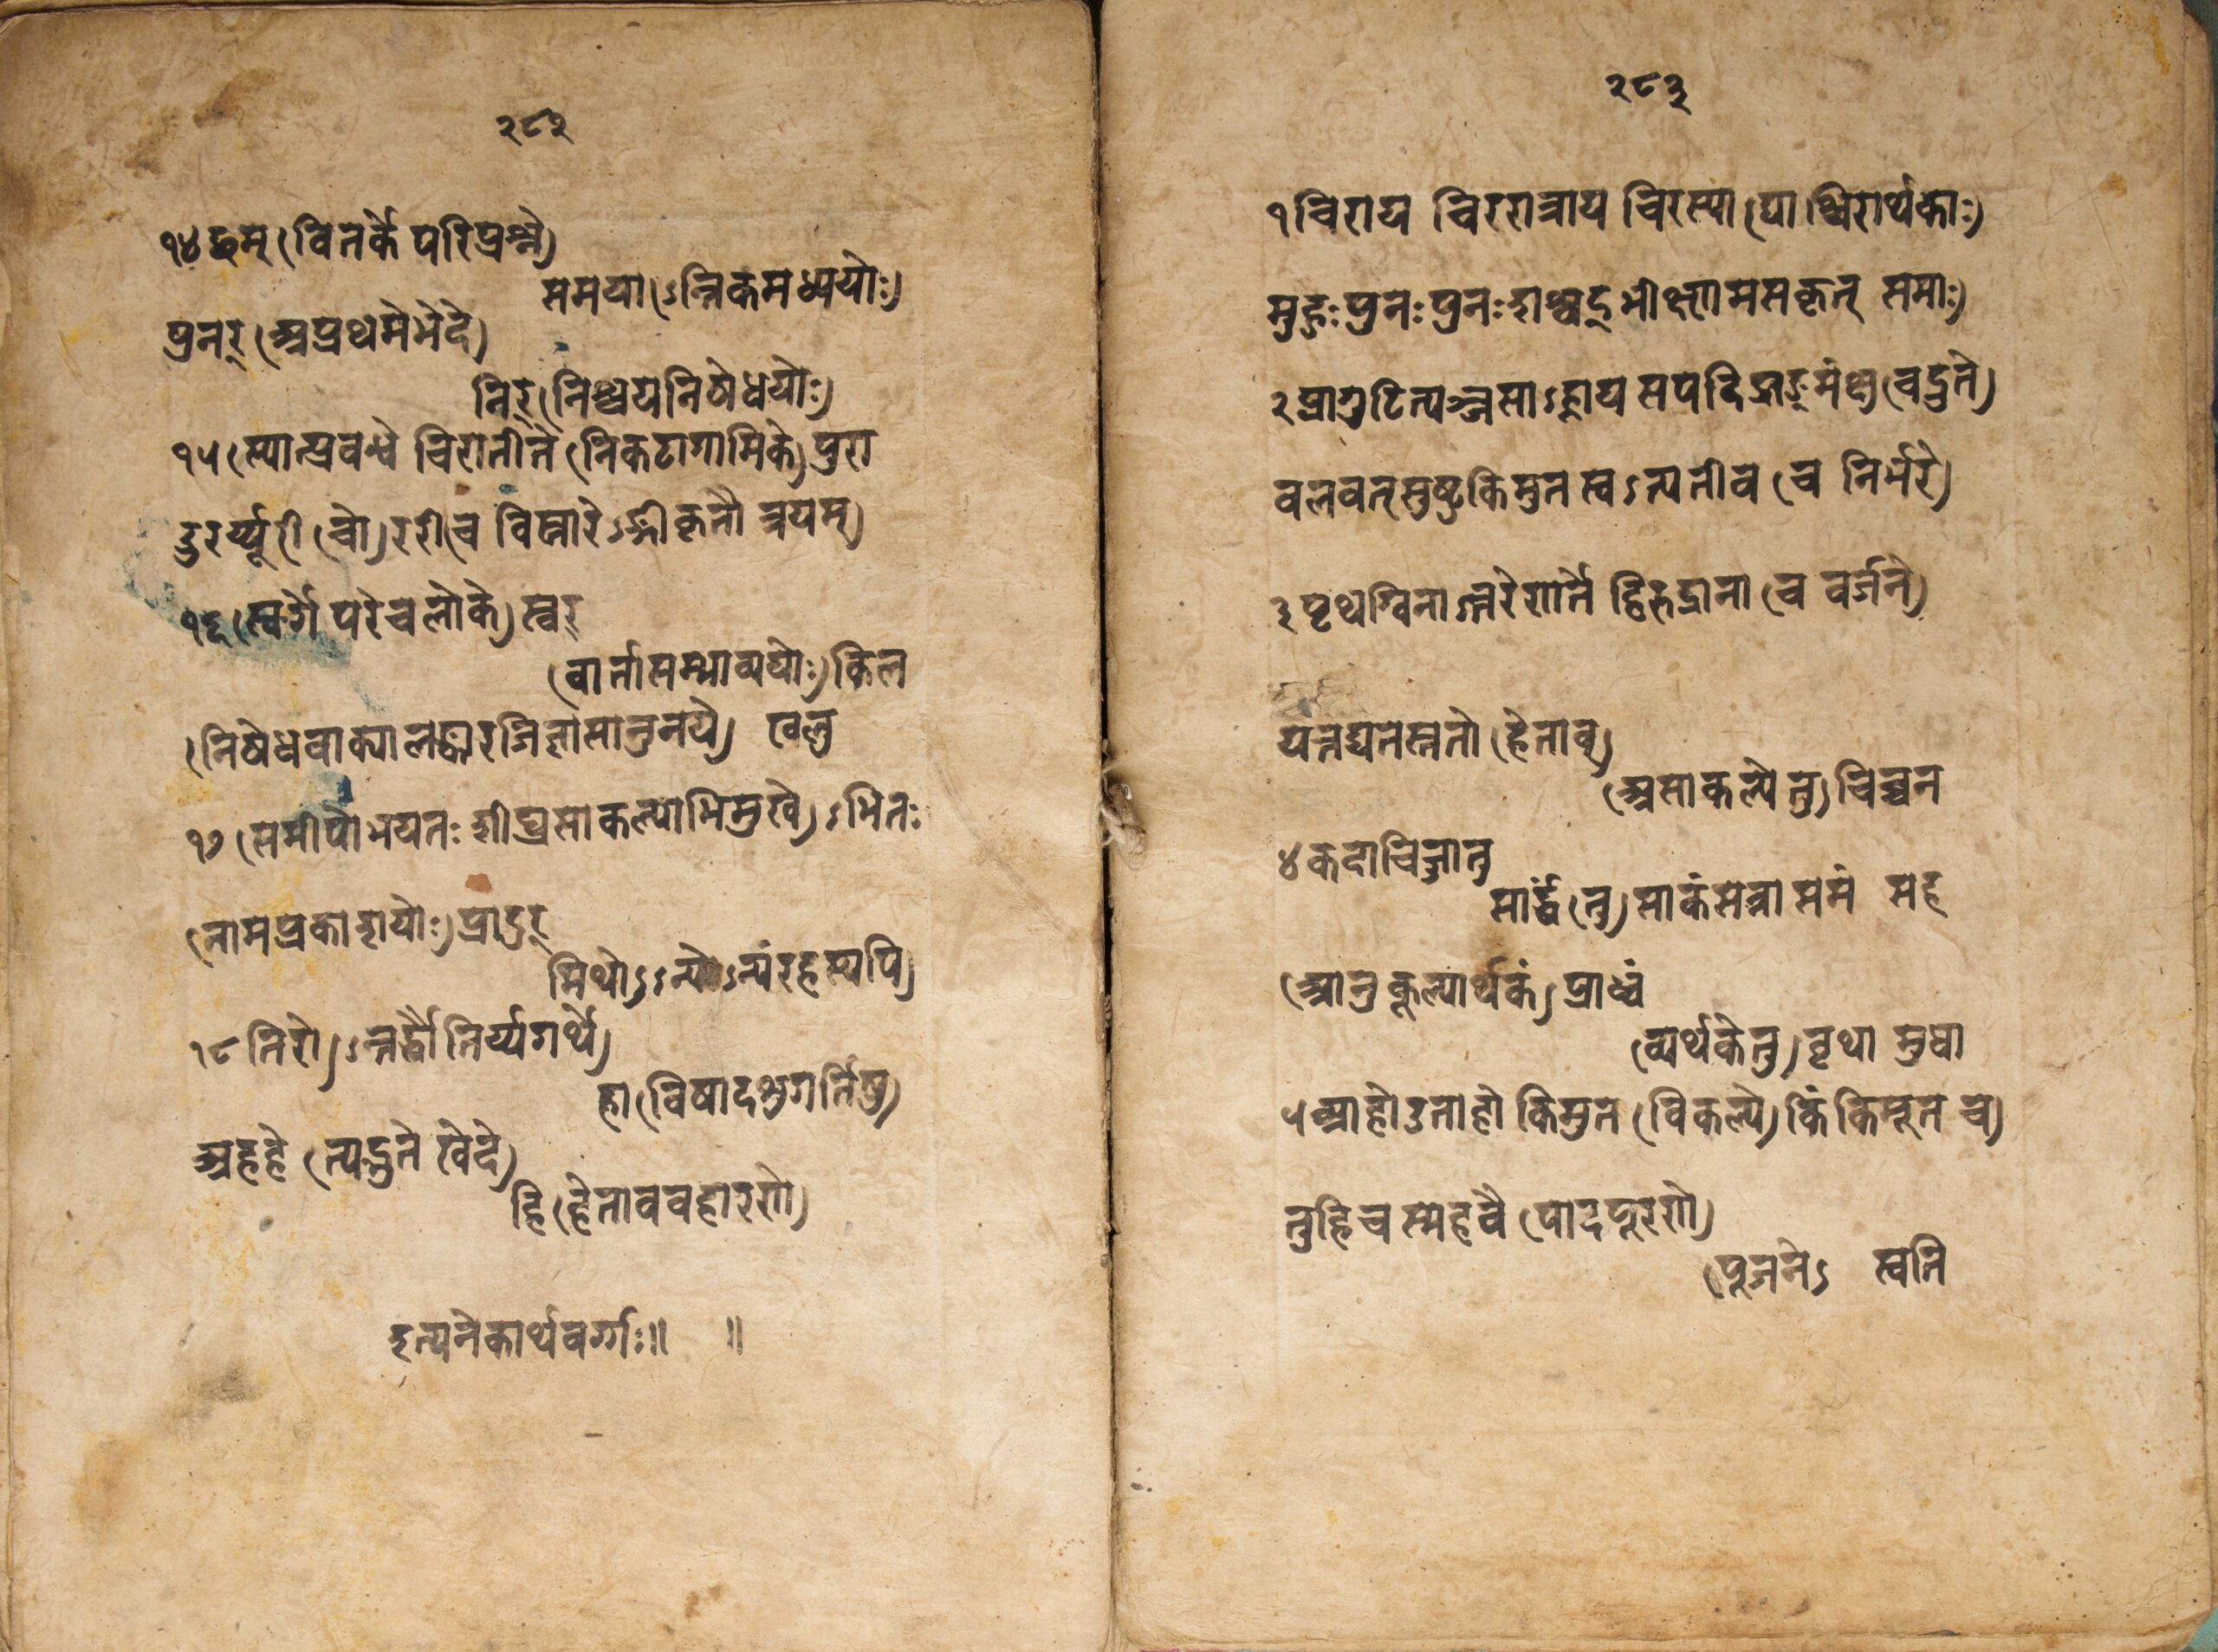 २८२
१४ हुम् (वितर्के परिप्रश्ने)
समया(ऽन्तिकमध्ययोः)
पुनर् (अप्रथमे भेदे)
निर् (निश्चयनिषेधयोः)
१५ (स्यात्प्रबन्धे चिरातीते (निकटागामिके) पुरा
उरर्य्यूरी (चो)ररी च विस्तारेऽङ्गीकृतौ त्रयम्)
१६ (स्वर्गे परे च लोके) स्वर्
(वार्तासम्भाव्ययोः) किल
(निषेधवाक्यालङ्कारजिज्ञासानुनये) खलु
१७ (समीपोभयतः शीघ्रसाकल्याभिमुखे)ऽभितः
(नामप्रकाशयोः) प्रादुर्
मिथो(ऽऽन्योऽन्यं रहस्यपि)
१८ तिरो(ऽन्तर्द्धौ तिर्य्यगर्थे)
हा (विषादशुगर्तिषु)
अहहे (त्यद्भुते खेदे)
हि (हेताववधारणे)
इत्यनेकार्थवर्गः॥ ॥
२८३
१ चिराय चिररात्राय चिरस्या(द्याश्चिरार्थकाः)
मुहुः पुनः पुनः शश्वद्भीक्ष्णमसकृत् समाः)
२ स्राग्झटित्यञ्जसाऽह्नाय सपदि द्राङ्मंक्षु (च द्रुते)
बलवत् सुष्ठु किमुत स्वऽत्यतीव (च निर्भरे)
३ पृथग्विनाऽन्तरेणर्ते हिरुङ्नाना (च वर्जने)
यत्तद्यतस्ततो (हेताव्)
(असाकल्ये तु) चिच्चन
४ कदाचिज्जातु
सार्द्धं (तु) साकं सत्रा समं सह
(आनुकूल्यार्थकं) प्राध्वं
(व्यर्थके तु) वृथा मुधा
५ आहो उताहो किमुत (विकल्पे) किं किमूत च)
तु हि च स्म ह वै (पादपूरणे)
(पूजने) स्वति